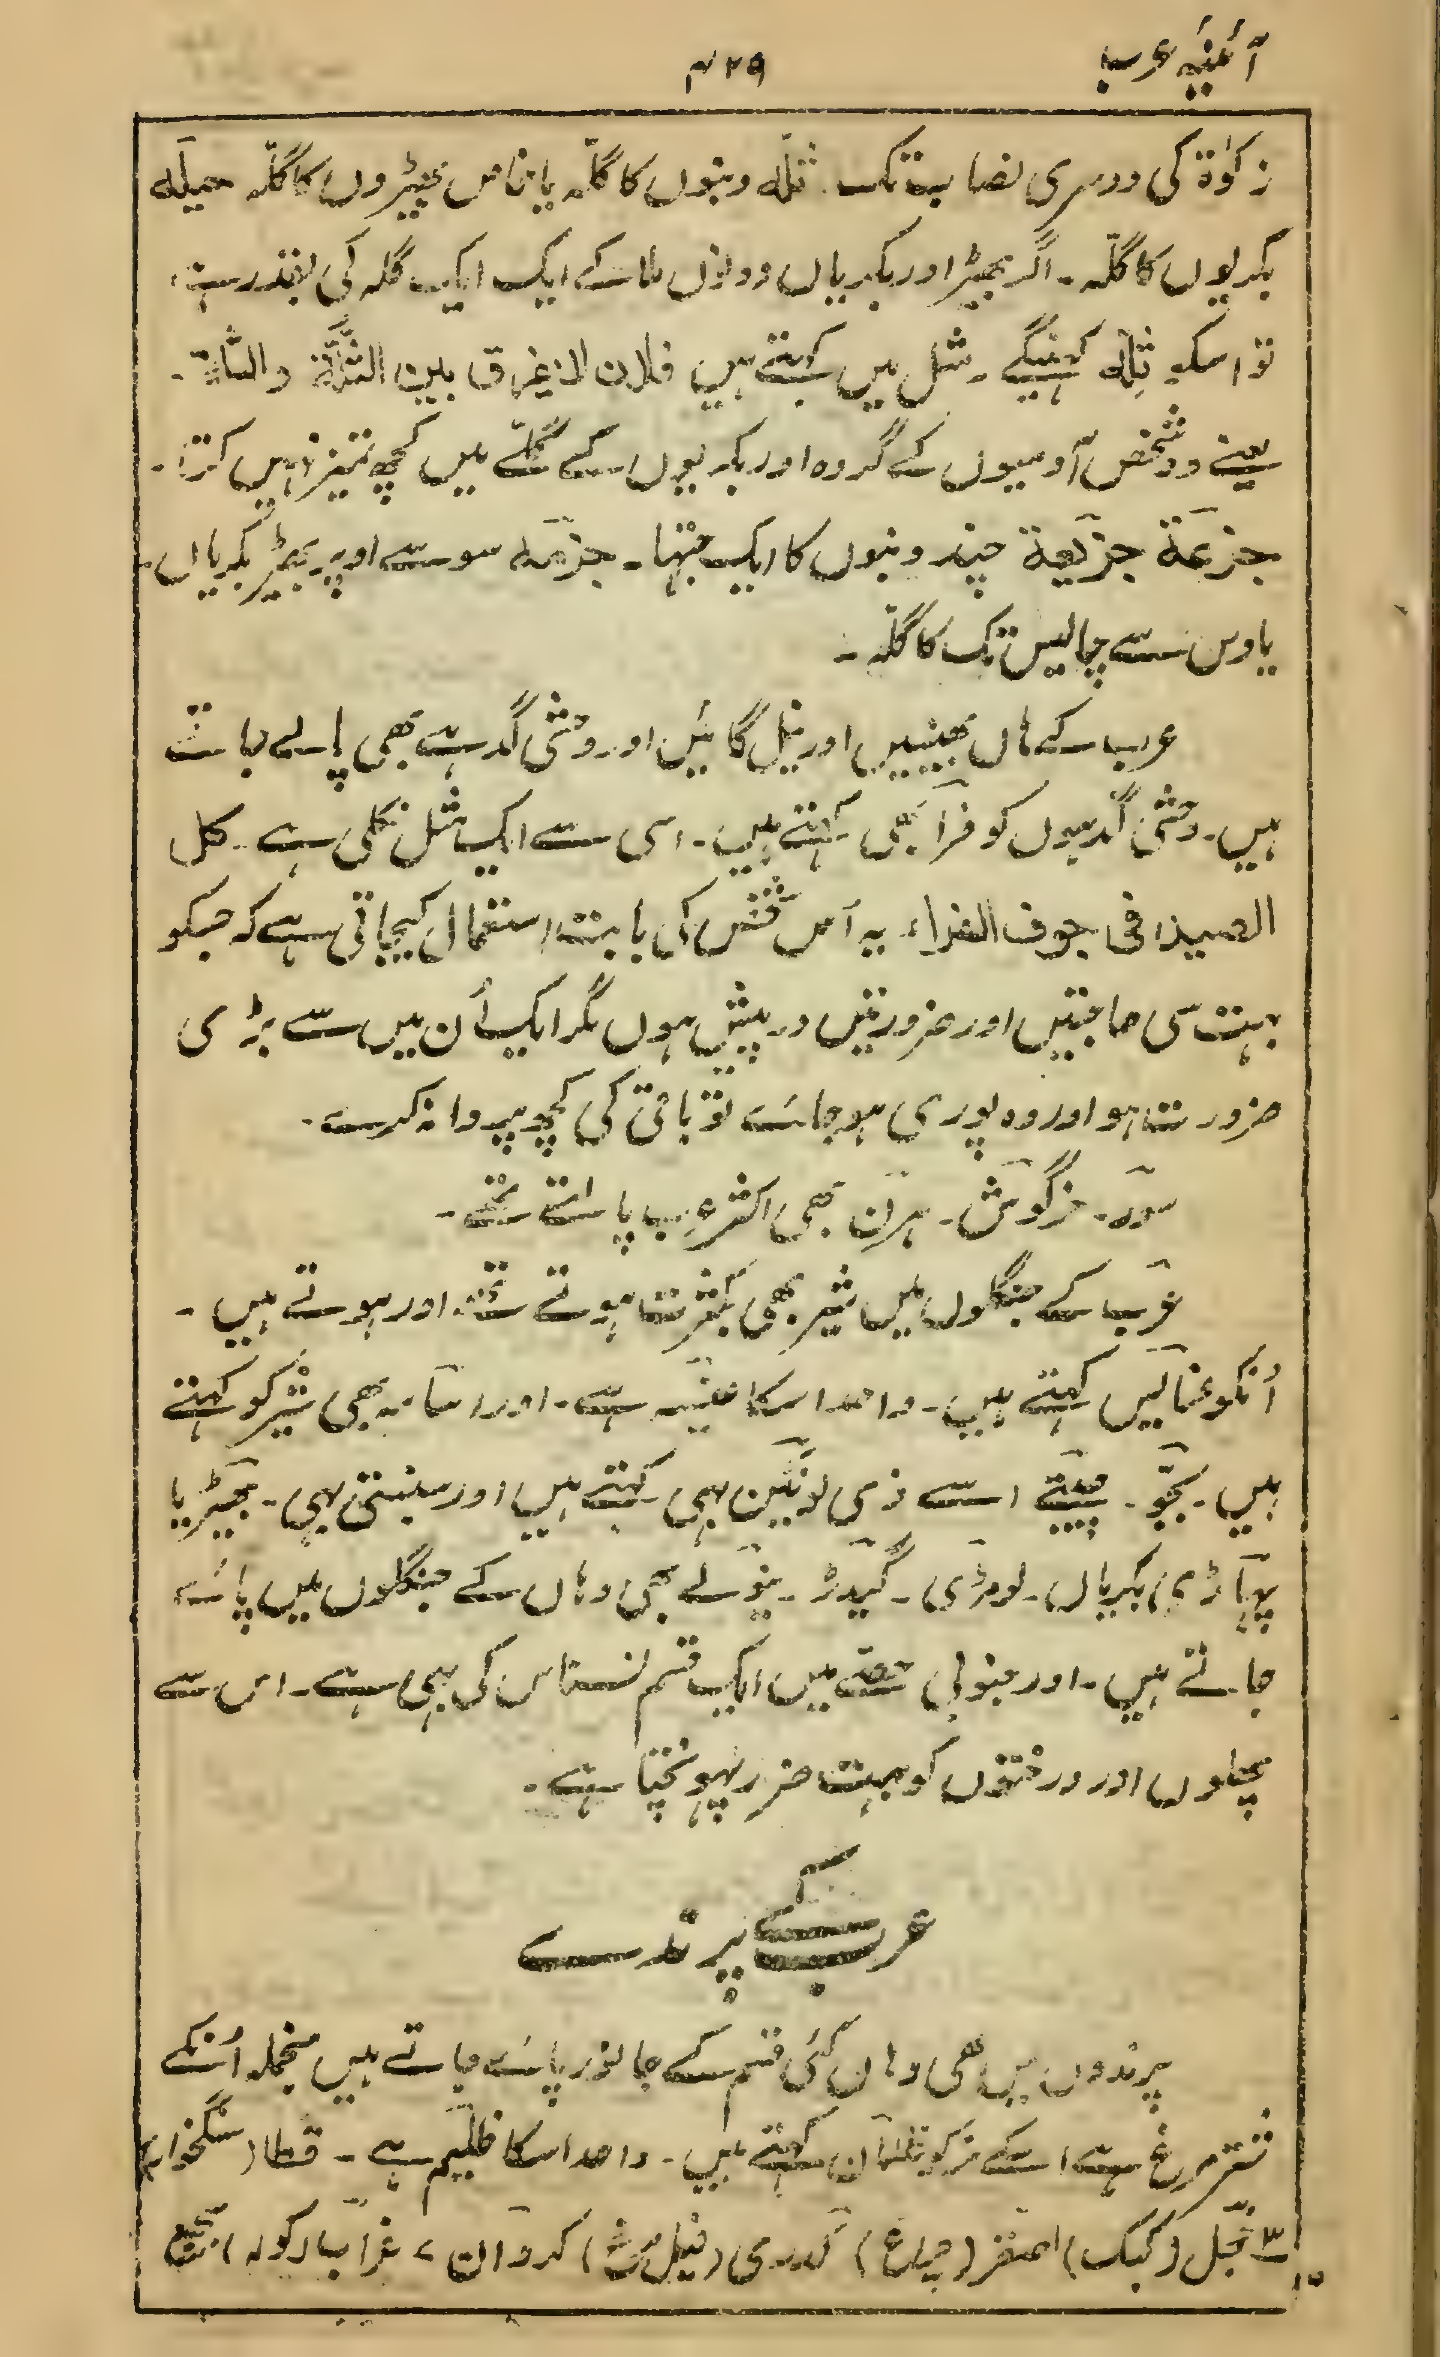 آئینۂ عرب
۴۲۹
زکوٰۃ کی دوسری نصاب تک۔ ثلّہ دنبوں کا گلّہ یا خاص بھیڑوں کا گلّہ حیلہ
بکریوں کا گلّہ۔ اگر بھیڑ اور بکریاں دونوں ملا کے ایک ایک گلہ کی بقدر ہے،
تو اسکو ثلّہ کہینگے۔ مثل میں کہتے ہیں فلان لا یفرق بین الثَّلَّۃ و الثلۃ۔
یعنے وہ شخص آدمیوں کے گروہ اور بکریوں کے گلّے میں کچھ تمیز نہیں کرتا۔
جزعۃ جزیعۃ چند دنبوں کا ایک جتہا۔ جزمہ سو سے اوپر بھیڑ بکریاں۔
یا دس سے چالیس تک کا گلّہ۔
عرب کے ہاں بھینسیں اور نیل گائیں اور وحشی گدہے بھی پالے جاتے
ہیں۔ وحشی گدہوں کو فرا بھی کہتے ہیں۔ اسی سے ایک مثل نکلی ہے۔ کل
الصید فی جوف الفراء یہ اُس شخص کی بابت استعمال کیجاتی ہے کہ جسکو
بہت سی حاجتیں اور ضرورتیں درپیش ہوں مگر ایک اُن میں سے بڑی
ضرورت ہو اور وہ پوری ہو جائے تو باقی کی کچھ پروا نہ کرے۔
سوہ۔ خرگوش۔ ہرن بھی اکثر عرب پالتے تھے۔
عرب کے جنگلوں میں شیر بھی بکثرت ہوتے تھے اور ہوتے ہیں۔
اُنکو عنابس کہتے ہیں۔ واحد اسکا عنبسہ ہے۔ اور اسامہ بھی شیر کو کہتے
ہیں۔ بجّو۔ چیتے اسے ذی لونین بہی کہتے ہیں اور سبنتی بہی۔ بھیڑیا
پہاڑی بکریاں۔ لومڑی۔ گیدڑ۔ نیولے بھی وہاں کے جنگلوں میں پائے
جاتے ہیں۔ اور جنوبی حصّے میں ایک قسم نسناس کی بہی ہے۔ اس سے
پھلوں اور درختوں کو بہت ضرر پہونچتا ہے۔
عرب کے پرندے
پرندوں میں بھی وہاں کئی قسم کے جانور پائے جاتے ہیں منجملہ اُنکے
شترمرغ ہے اسکے نر کو ظلمان کہتے ہیں۔ واحد اسکا ظلیم ہے۔ قطا (سنگخوارہ)
حجل (کبک) اصقر (چرغ) کدری (فیل مرغ) کروان، غراب